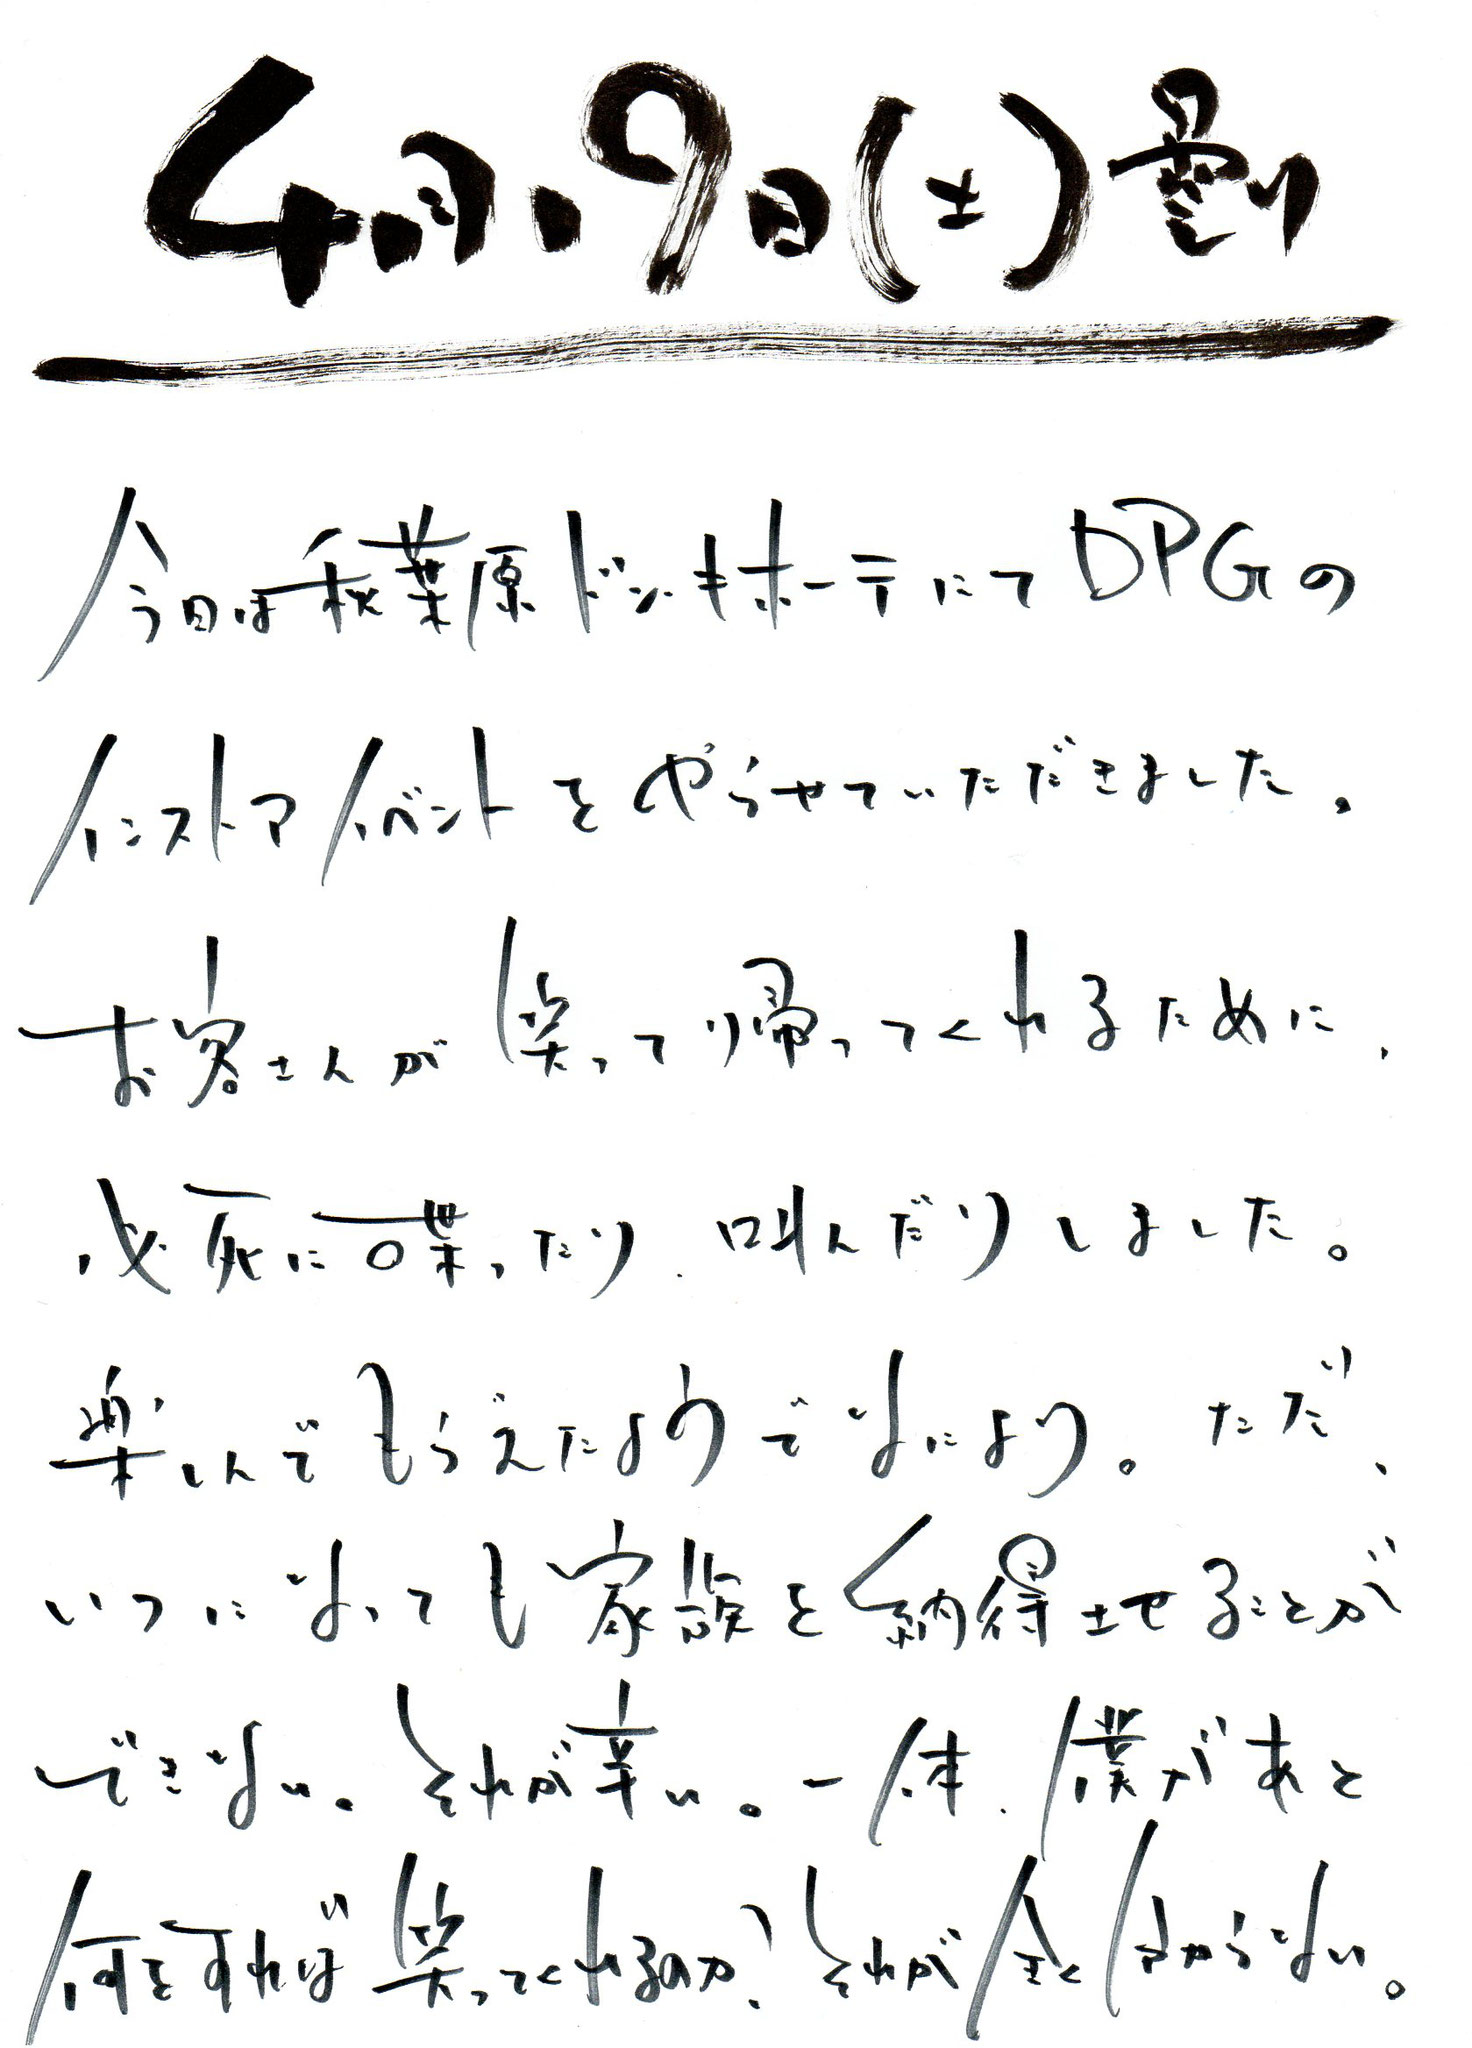 4月9日(土)曇り
今日は秋葉原ドンキホーテにてDPGの
インストアイベントをやらせていただきました。
お客さんが笑って帰ってくれるために、
必死に喋ったり、叫んだりしました。
楽しんでもらえたようでなにより。ただ、
いつになっても家族を納得させることが
できない。それが辛い。一体、僕があと
何をすれば笑ってくれるのか?それが全く分からない。